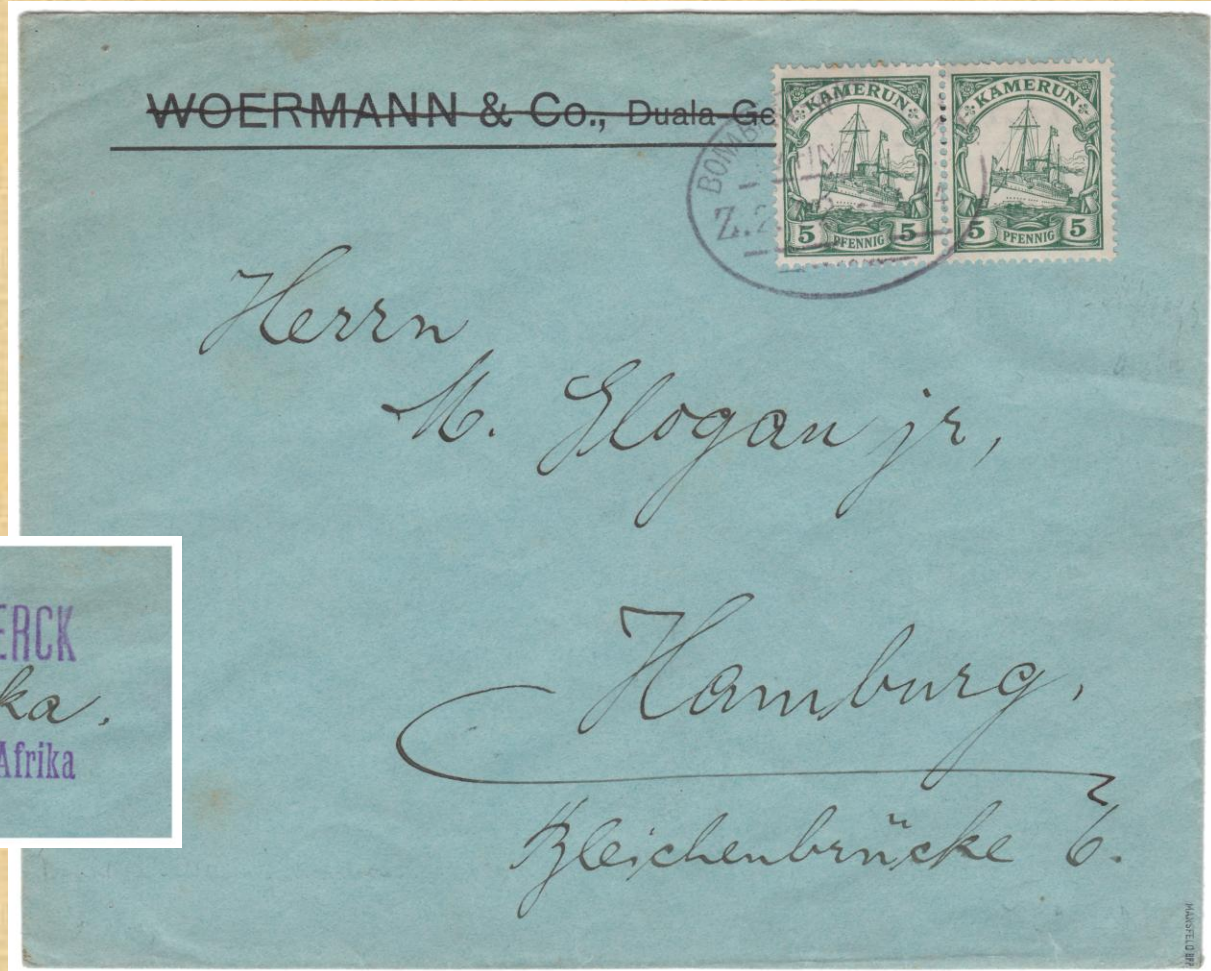 WOERMANN & Co., Duala-Ge
KAMERUN KAMERUN
BOMB
Z. 2
5 PFENNIG 5 5 PFENNIG 5
Herrn
M. Glogau jr,
Hamburg,
Bleichenbrücke 6.
ERCK
ka.
Afrika
MANSFELD BPP